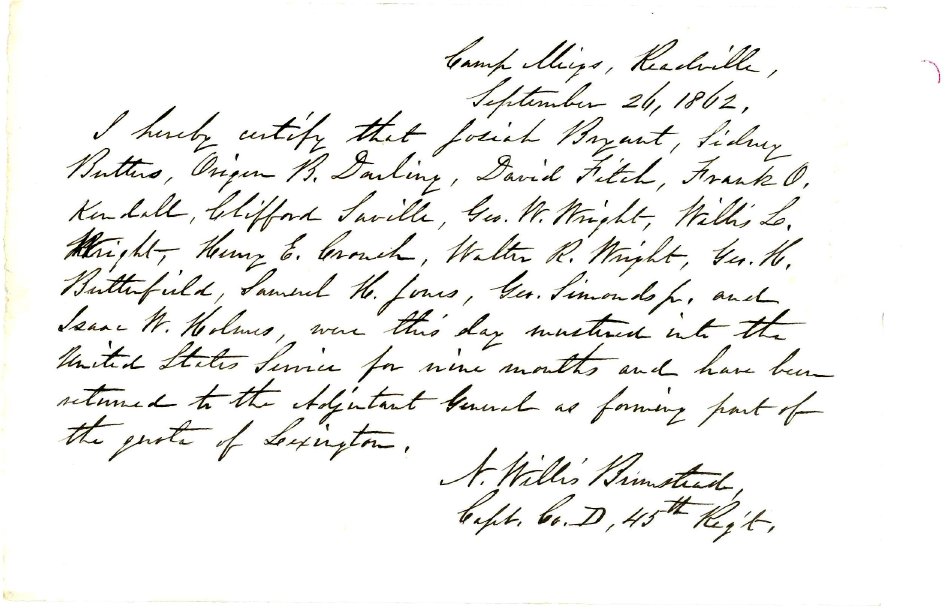 Camp Meigs, Readville,
September 26, 1862.
I hereby certify that Josiah Bryant, Sidney
Butters, Origen B. Darling, David Fitch, Frank O.
Kendall, Clifford Saville, Geo. W. Wright, Willis L.
Wright, Henry E. Crouch, Walter R. Wright, Geo. H.
Butterfield, Samuel H. Jones, Geo. Simonds jr. and
Isaac W. Holmes, were this day mustered into the
United States Service for nine months and have been
returned to the Adjutant General as forming part of
the quota of Lexington.
N. Willis Bumstead,
Capt. Co. D, 45th Reg't.